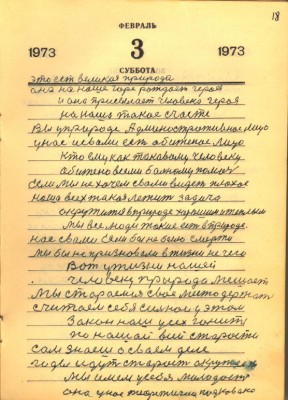 18
ФЕВРАЛЬ
1973 3 1973
СУББОТА
это ест великая природа
она на наше горе рождает героя
и она присылает человека героя
на наших такое счастье
Вы у природе Административное лицо
у нас и свами ест обиженое лицо
Кто ему как таковому человеку
обижено всеми болному помог
Если мы не хочем свами видет плохое
наша всех такая лежит задача
окружит в природе хорошим и теплым
Мы все люди такие ест в природе
нас свами Если бы не было смерти
мы бы не признавали в жизни не чего
Вот у жизни нашей
человеку природа мешает
Мы стараемся свое методержат
считаем себя силной у этом
Закон наш усех гонит
до нашей вией старости
сам знаеш о своем деле
годы идут старост окружает
Мы имеем у себя молодост
она у нас теоретична подковано